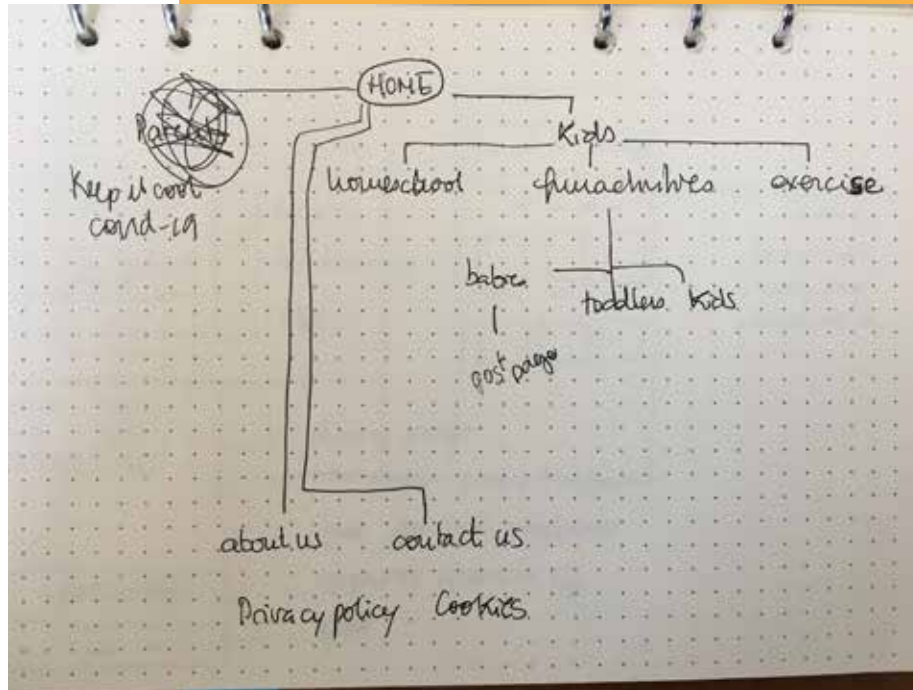 HOME
Parents
Kids
Keep it cool
covid-19
homeschool fun activities exercise
babies toddlers Kids
post page
about us contact us
Privacy policy Cookies